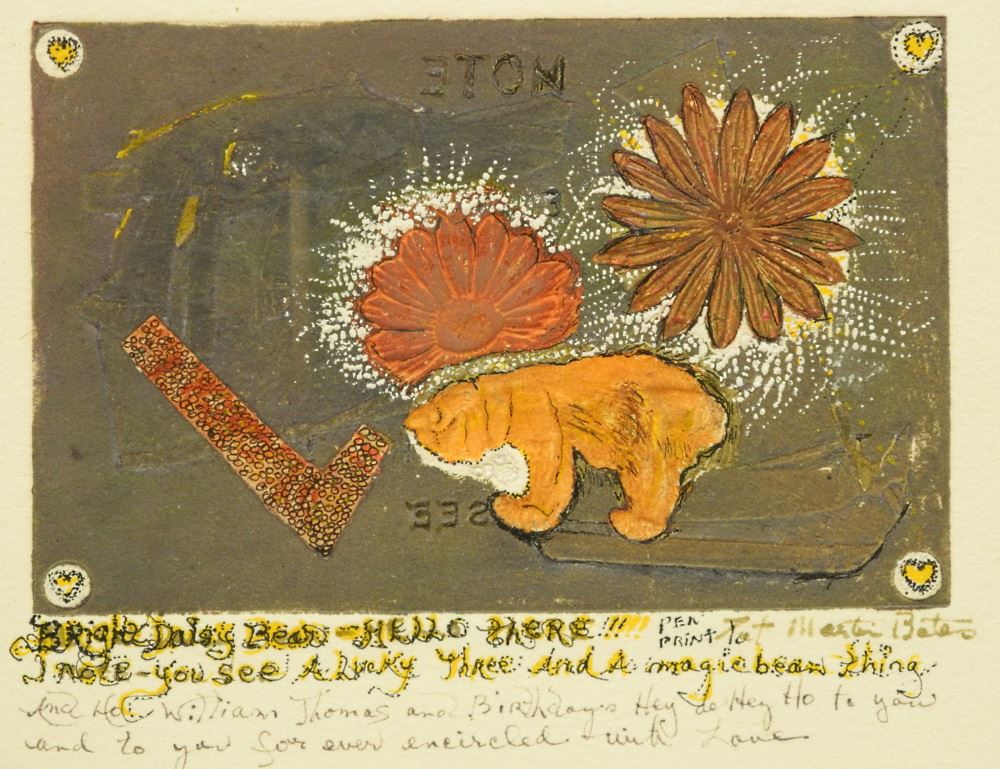 NOTE
SEE
BRight Daisy Bear - HELLO there !!!!! PER PRINT Pat Martin Bates
I NOTE - you see A Lucky Three And A magic bear thing
And Ho William Thomas and Birthdays Hey de Hey Ho to you
and to you for ever encircled with Love